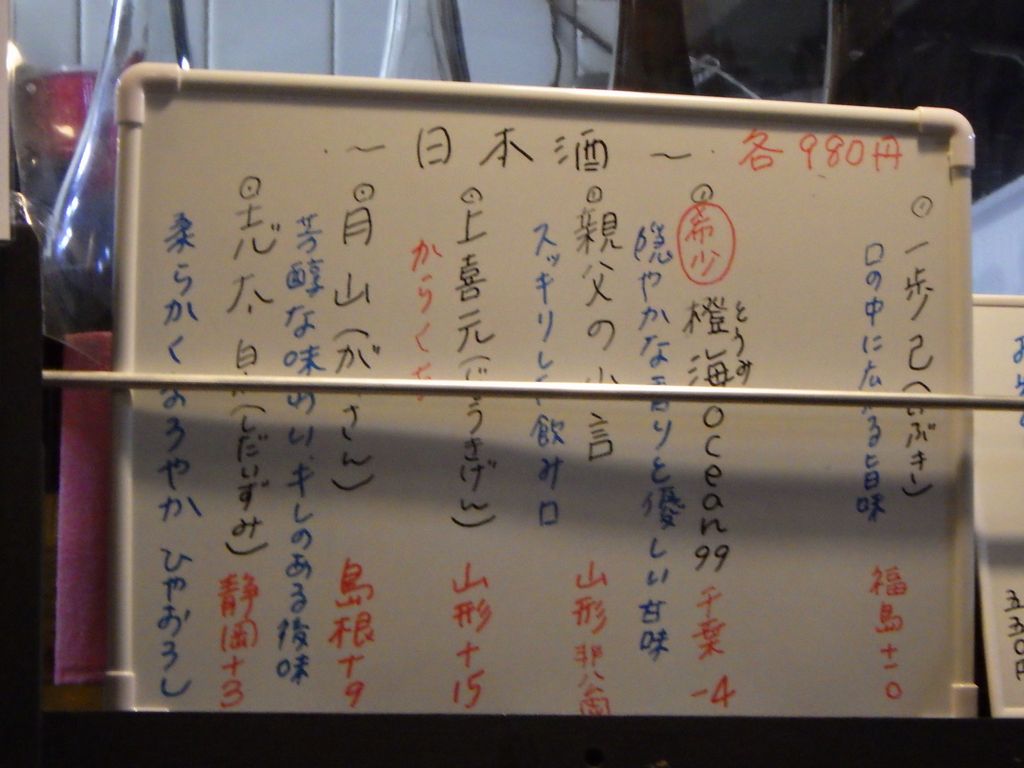 ～日本酒～ 各980円
一歩己(いぶき)
福島 +-0
口の中に広がる旨味
希少 橙海 とうみ ocean99
千葉 -4
穏やかな香りと優しい甘味
親父の小言
山形 非公開
スッキリした飲み口
上喜元(じょうきげん)
山形 +15
からくち
月山(がっさん)
島根 +9
芳醇な味わい、キレのある後味
志太泉(しだいずみ)
静岡 +3
柔らかくまろやか ひやおろし
五五〇円